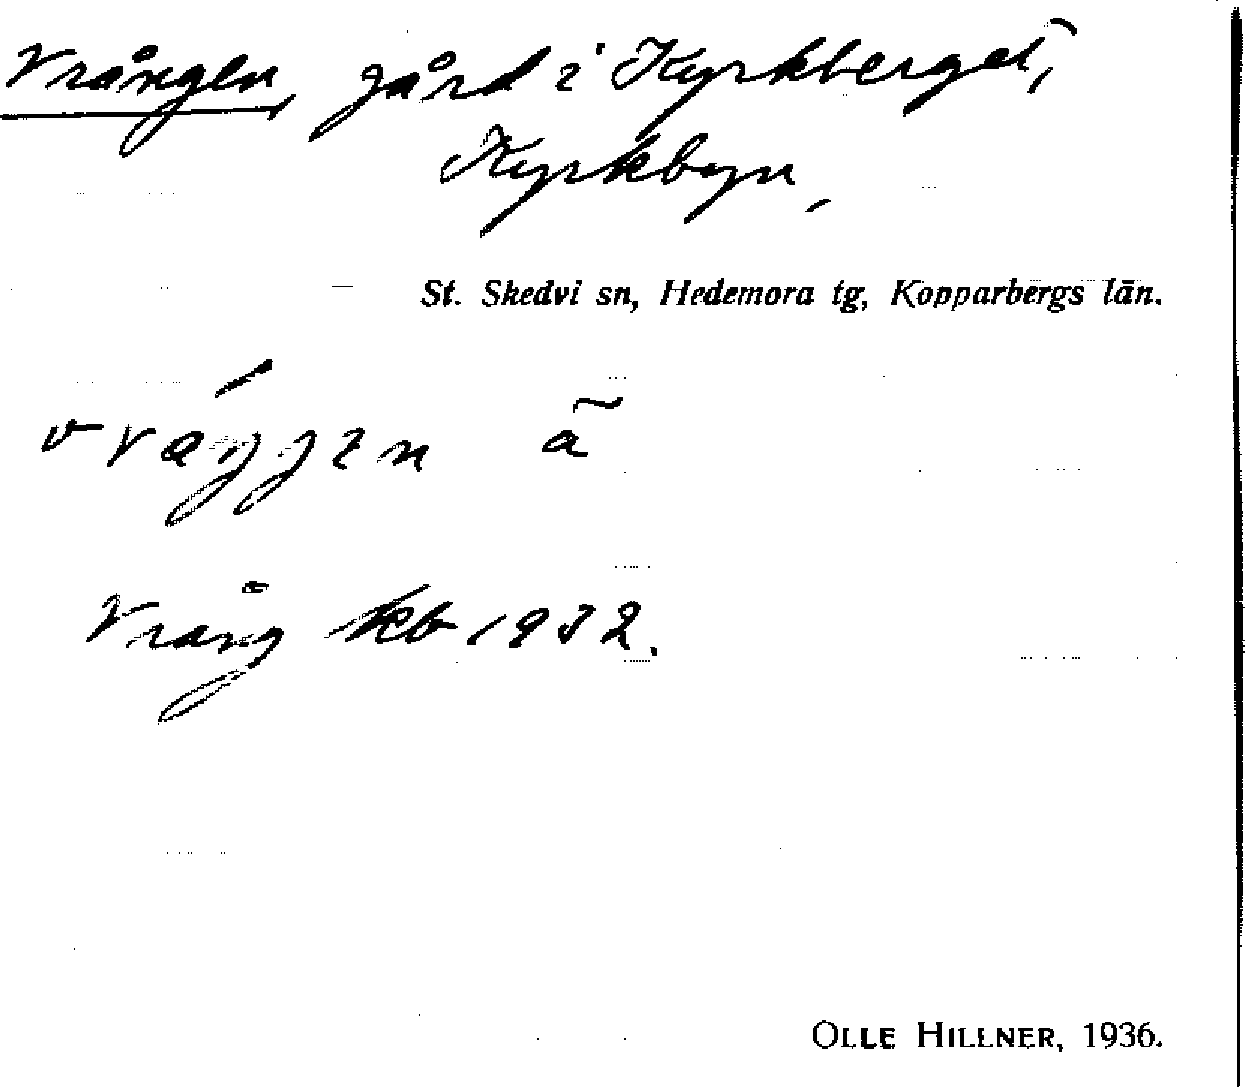 Vrången, gård i Kyrkberget,
Kyrkbyn,
St. Skedvi sn, Hedemora tg, Kopparbergs län.
Vrång kb 1932.
OLLE HILLNER, 1936.